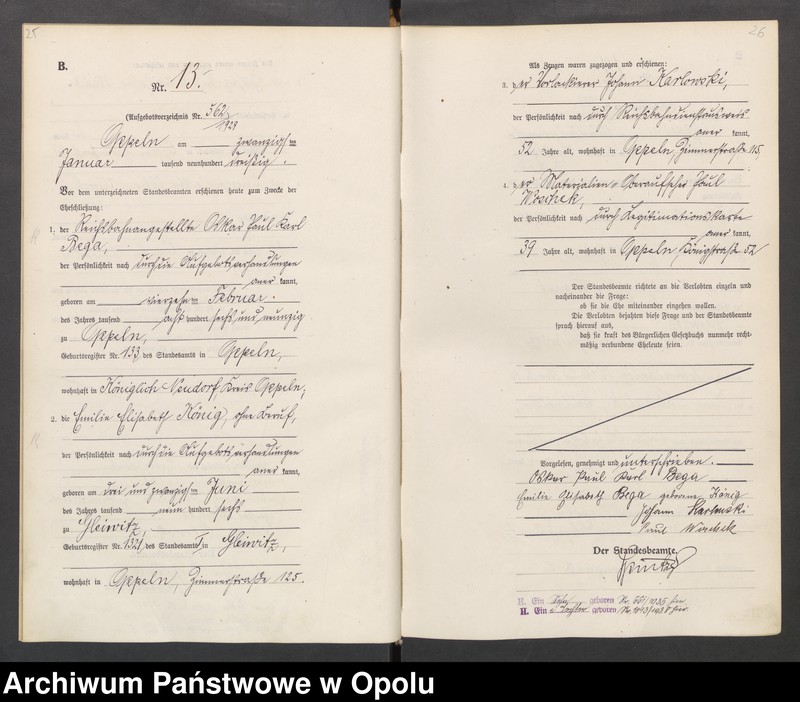 25
B.
Nr. 13.
(Aufgebotsverzeichnis Nr. 562/1929
Oppeln am zwanzigsten
Januar tausend neunhundert dreißig.
Vor dem unterzeichneten Standesbeamten erschienen heute zum Zwecke der
Eheschließung:
1. der Reichsbahnangestellte Oskar Paul Karl
Bega,
der Persönlichkeit nach durch die Aufgebotsverhandlungen
aner kannt,
geboren am vierzehnten Februar
des Jahres tausend acht hundert sechs und neunzig
zu Oppeln,
Geburtsregister Nr. 133 des Standesamts in Oppeln,
wohnhaft in Königlich Neudorf, Kreis Oppeln;
2. die Emilie Elisabeth König, ohne Beruf,
der Persönlichkeit nach durch die Aufgebotsverhandlungen
aner kannt,
geboren am drei und zwanzigsten Juni
des Jahres tausend neun hundert sechs
zu Gleiwitz,
Geburtsregister Nr. 1321 des Standesamts I in Gleiwitz,
wohnhaft in Oppeln, Zimmerstraße 125.
26
Als Zeugen waren zugezogen und erschienen:
3. der Vorlackierer Johann Karlowski,
der Persönlichkeit nach durch Reichsbahndienstausweis
aner kannt,
52 Jahre alt, wohnhaft in Oppeln, Zimmerstraße 115,
4. der Materialien-Oberaufseher Paul
Woschek,
der Persönlichkeit nach durch Legitimationskarte
aner kannt,
39 Jahre alt, wohnhaft in Oppeln, Königstraße 52
Der Standesbeamte richtete an die Verlobten einzeln und
nacheinander die Frage:
ob sie die Ehe miteinander eingehen wollen.
Die Verlobten bejahten diese Frage und der Standesbeamte
sprach hierauf aus,
daß sie kraft des Bürgerlichen Gesetzbuchs nunmehr recht-
mäßig verbundene Eheleute seien.
Vorgelesen, genehmigt und unterschrieben.
Oskar Paul Karl Bega
Emilie Elisabeth Bega geborene König
Johann Karlowski
Paul Woschek
Der Standesbeamte.
II. Ein geboren Nr.
II. Ein Tochter geboren Nr.
Archiwum Państwowe w Opolu